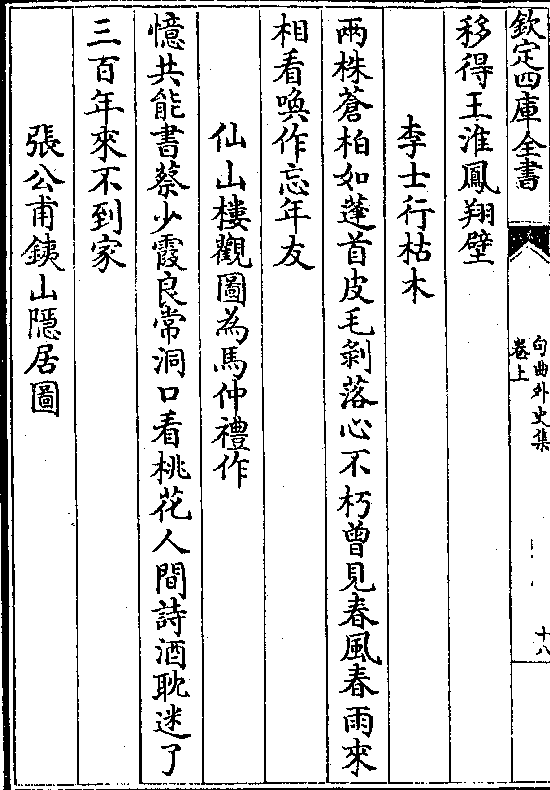 欽定四庫全書
句曲外史集
卷上
十八
移得王淮鳳翔壁
李士行枯木
兩株蒼柏如蓬首皮毛剝落心不朽曾見春風春雨來
相看喚作忘年友
仙山樓觀圖為馬仲禮作
憶共能書蔡少霞良常洞口看桃花人間詩酒耽迷了
三百年來不到家
張公甫銕山隱居圖